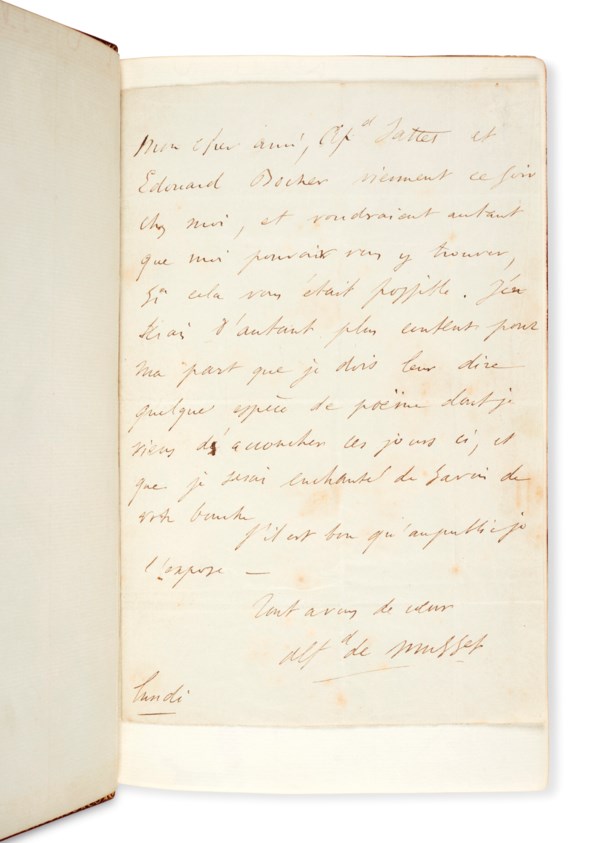 Mon cher ami, Alf^d Tattet et
Edouard Bocher viennent ce soir
chez moi, et voudraient autant
que moi pouvoir vous y trouver,
si cela vous était possible. J'en
serais d'autant plus content pour
ma part que je dois leur dire
quelque espèce de poëme dont je
viens d'accoucher ces jours ci, et
que je serai enchanté de savoir de
votre bouche
s'il est bon qu'au public je
l'expose —
Tout a vous de cœur
Alf^d de Musset
Lundi